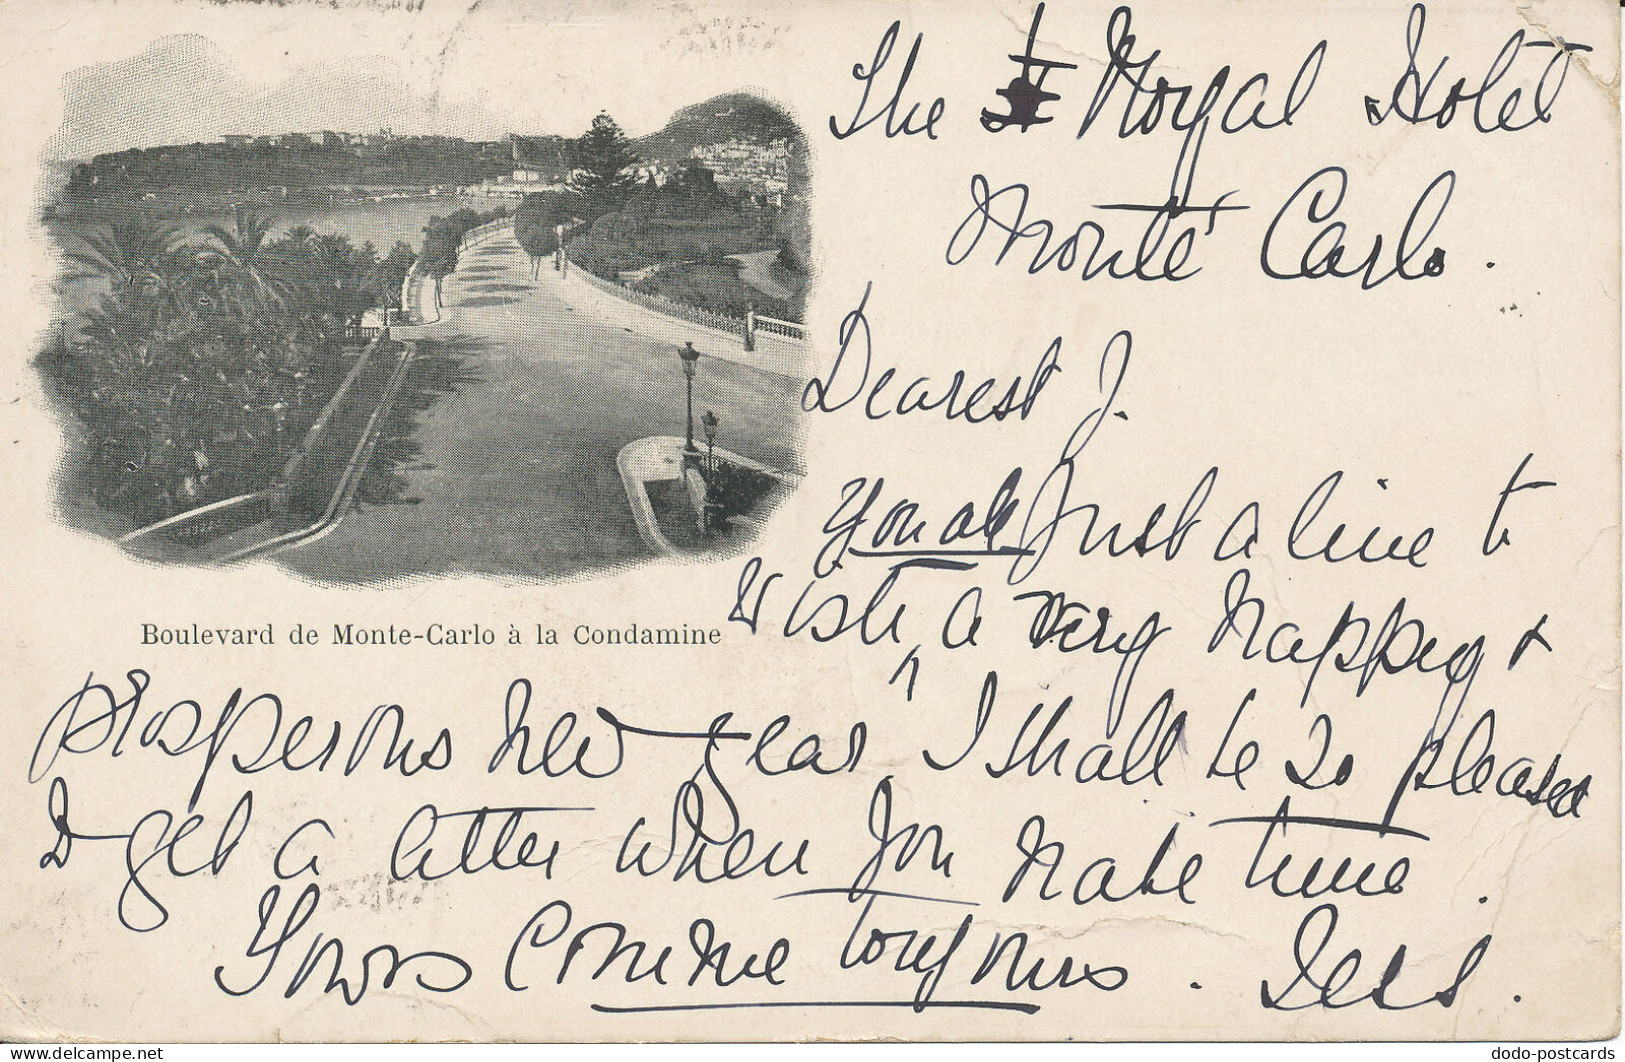 The Royal Hotel
Monté Carlo.
Dearest J.
You all
Just a line to
Wish ^ a very happy +
prosperous new year, I shall be so pleased
to get a letter when you have time.
Yours Comme toujours. Jess.
Boulevard de Monte-Carlo à la Condamine
dodo-postcards